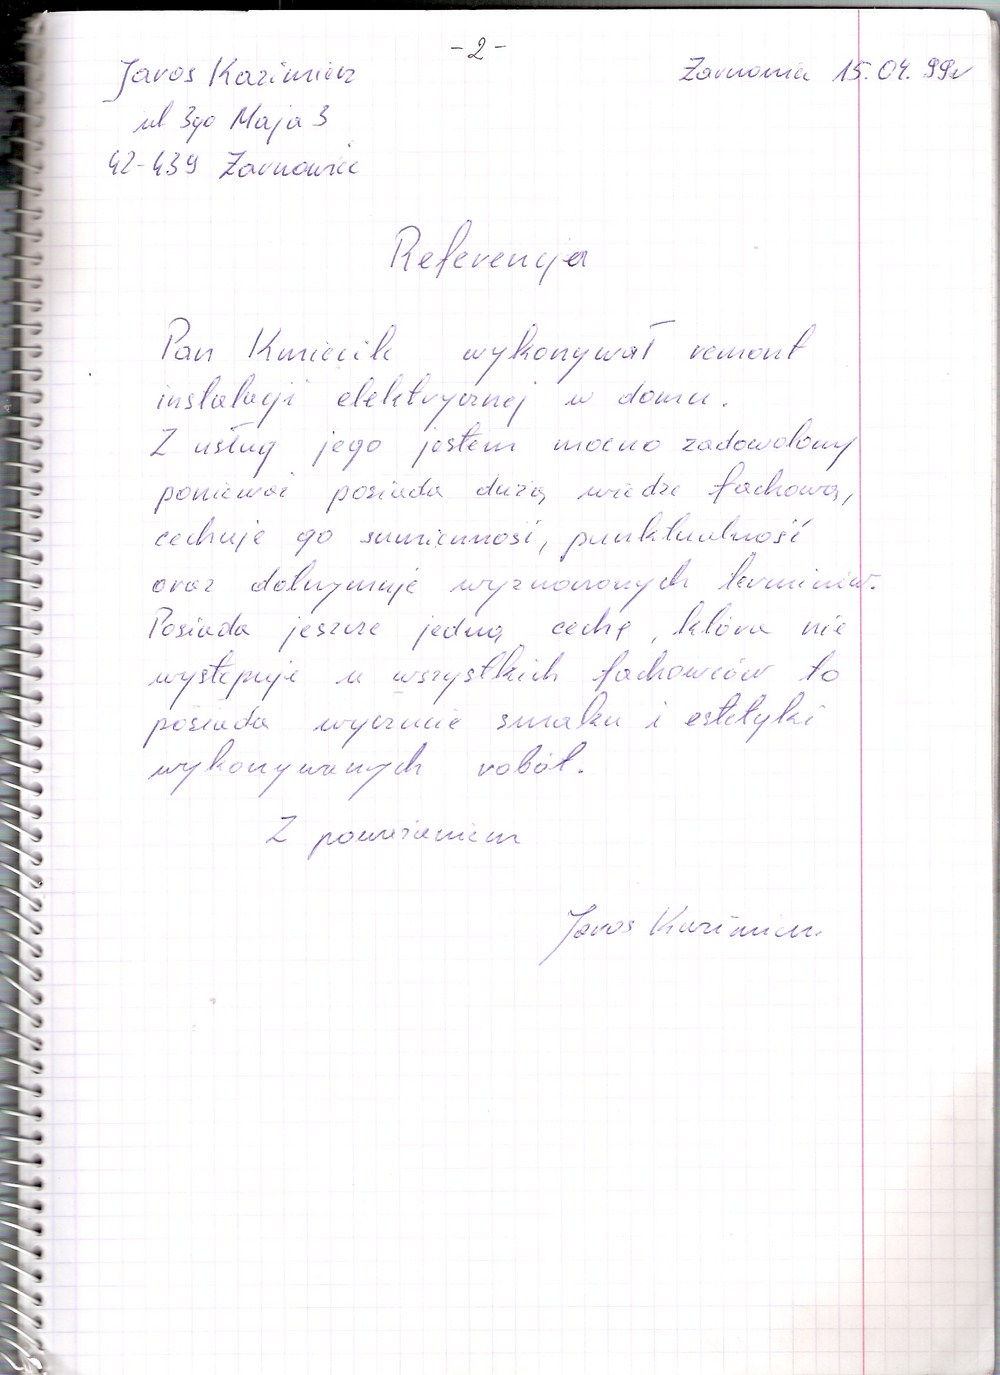 - 2 -
Jaros Kazimierz
Żarnowiec 15.04.99r
ul 3go Maja 3
42-439 Żarnowiec
Referencja
Pan Kmiecik wykonywał remont
instalacji elektrycznej w domu.
Z usług jego jestem mocno zadowolony
ponieważ posiada dużą wiedzę fachową,
cechuje go sumienność, punktualność
oraz dotrzymuje wyznaczonych terminów.
Posiada jeszcze jedną cechę, która nie
występuje u wszystkich fachowców to
posiada wyczucie smaku i estetyki
wykonywanych robót.
Z poważaniem
Jaros Kazimierz